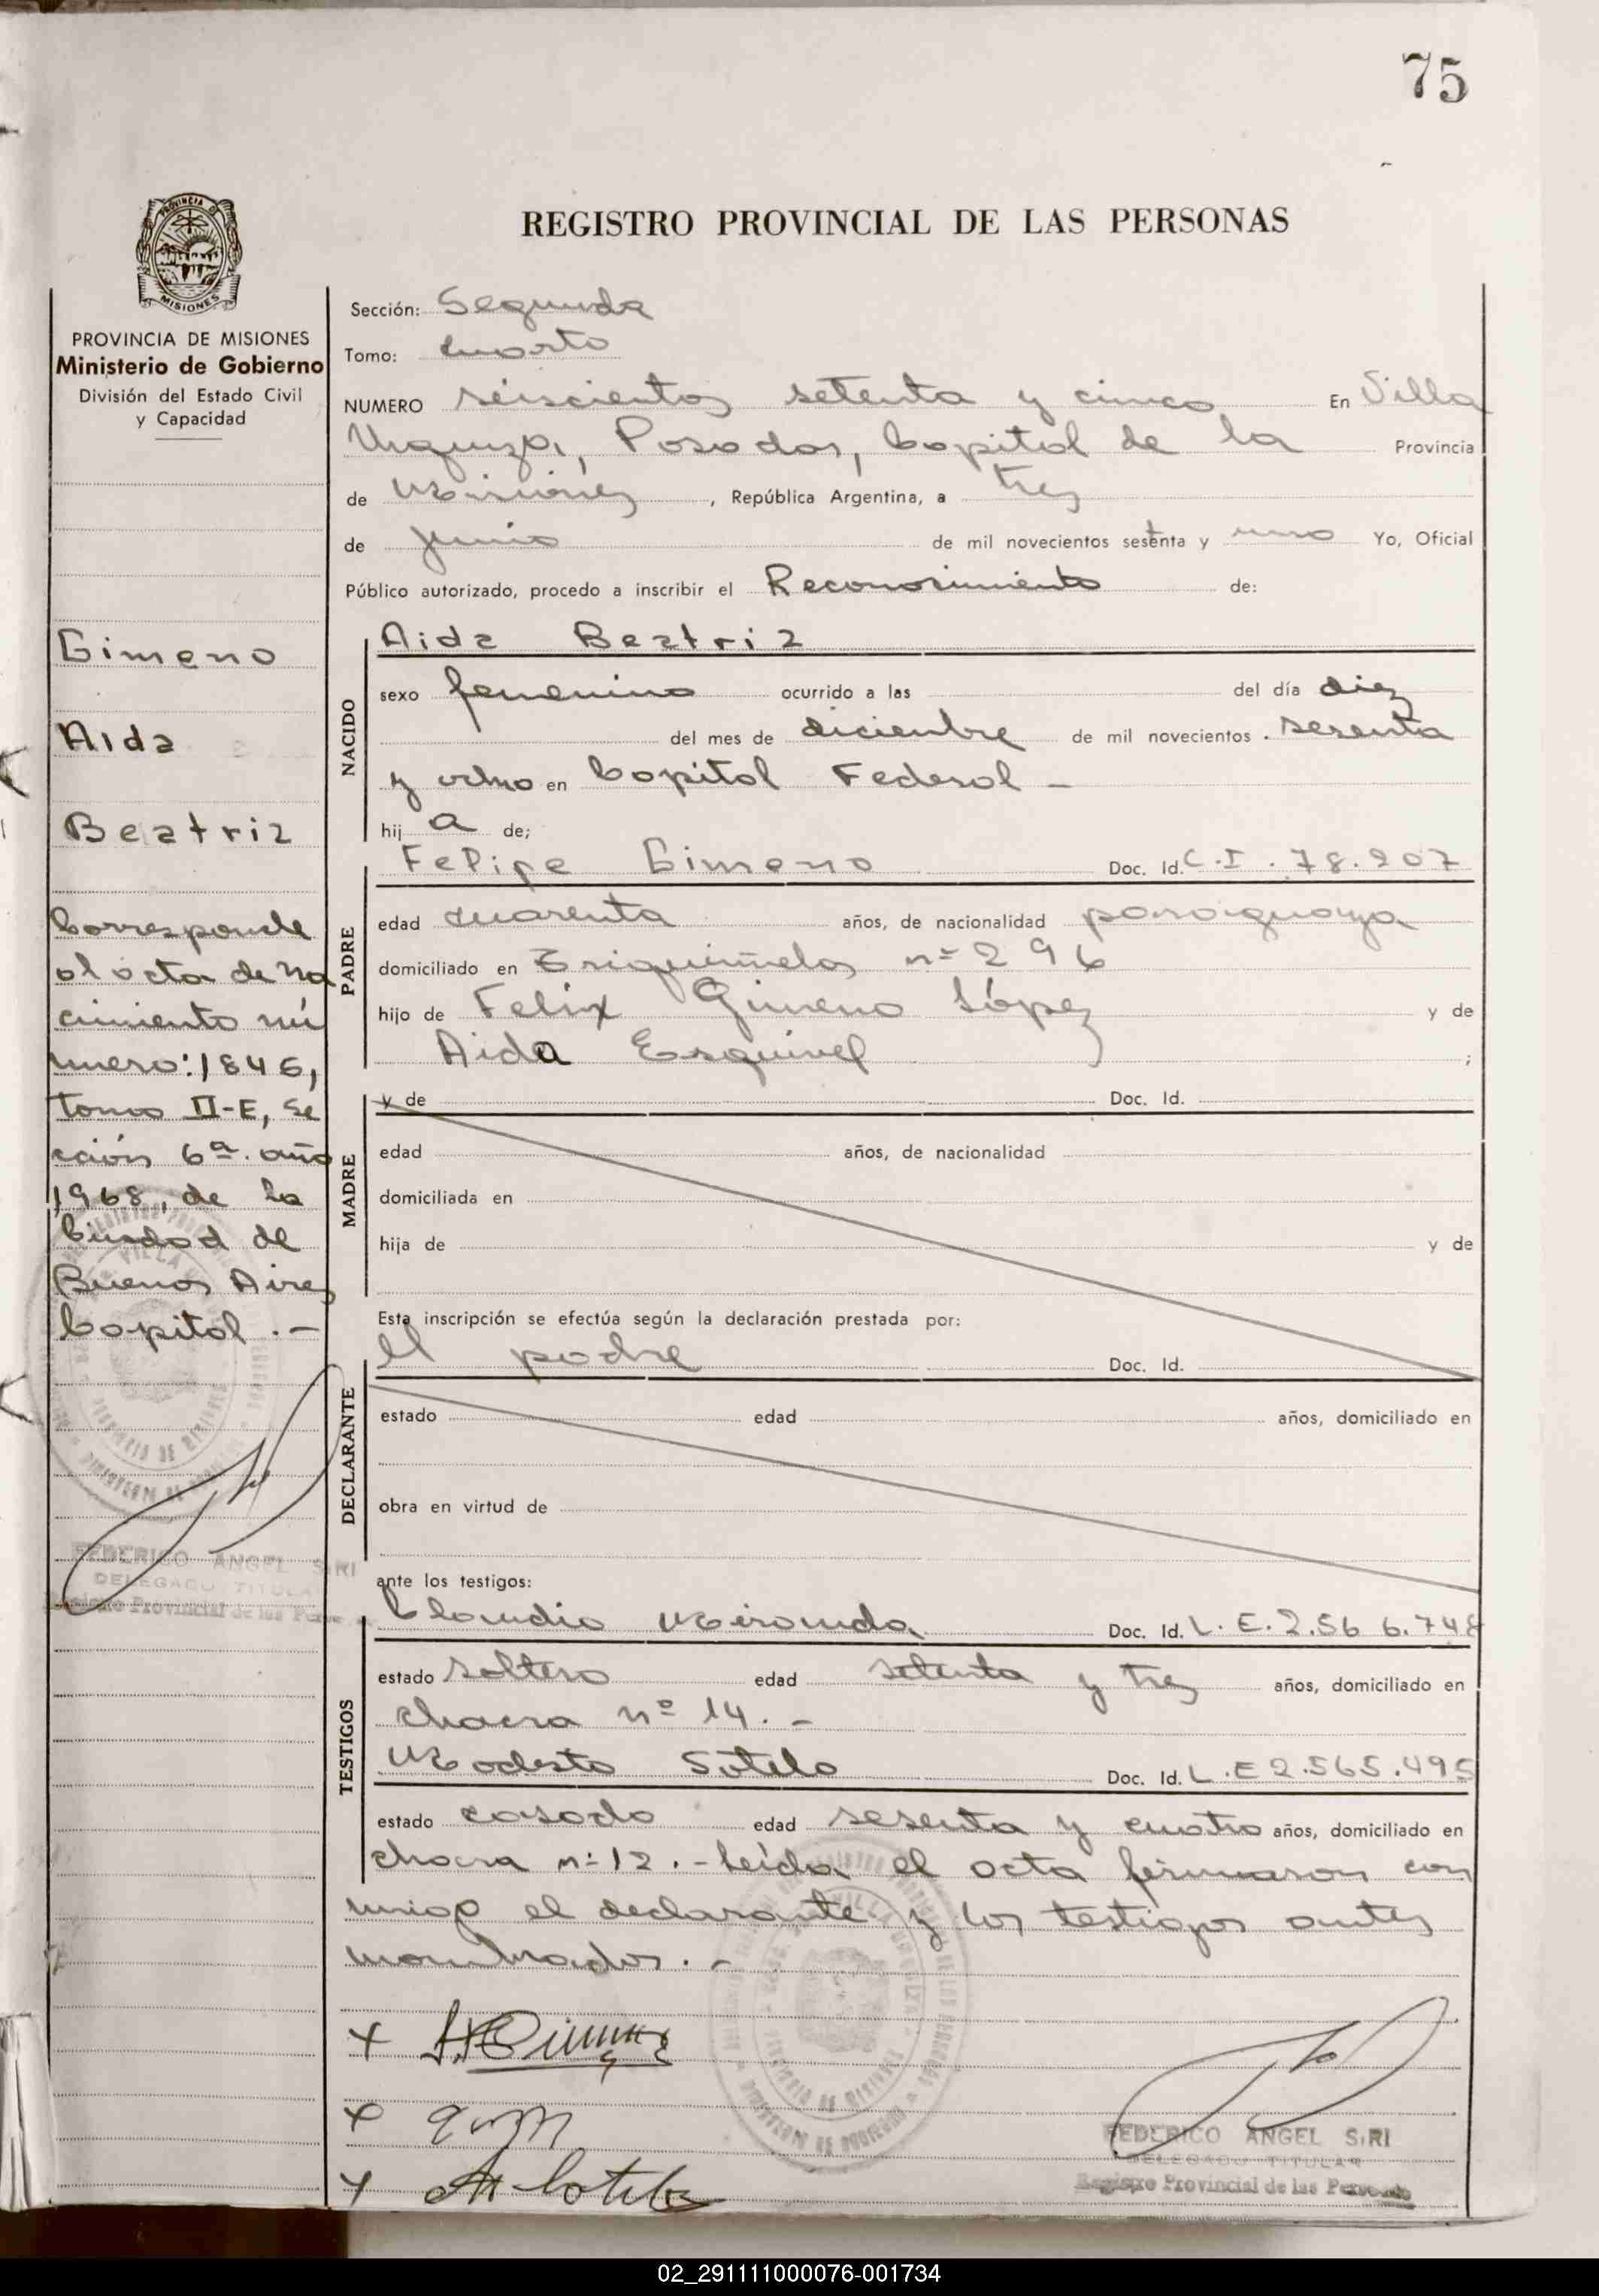 75
REGISTRO PROVINCIAL DE LAS PERSONAS
PROVINCIA DE MISIONES
Ministerio de Gobierno
División del Estado Civil
y Capacidad
Gimeno
Aida
Beatriz
Corresponde
al acta de na
cimiento nú
mero: 1846,
tomo II-E, se
cción 6ª. año
1968, de la
Ciudad de
Buenos Aires
Capital .-
FEDERICO ANGEL SIRI
DELEGADO TITULA
Registro Provincial de las Perso
Sección: Segunda
Tomo: Cuarto
NUMERO seiscientos setenta y cinco En Villa
Urquiza, Posadas, Capital de la Provincia
de Misiones, República Argentina, a tres
de junio de mil novecientos sesenta y uno Yo, Oficial
Público autorizado, procedo a inscribir el Reconocimiento de:
NACIDO
Aida Beatriz
sexo femenino ocurrido a las del día diez
del mes de diciembre de mil novecientos sesenta
y ocho en Capital Federal -
hij a de;
PADRE
Felipe Gimeno Doc. Id. C.I. 78.207
edad cuarenta años, de nacionalidad paraguaya
domiciliado en nº 296
hijo de Felix Gimeno López y de
Aida Esquivel ;
MADRE
y de Doc. Id.
edad años, de nacionalidad
domiciliada en
hija de y de
Esta inscripción se efectúa según la declaración prestada por:
DECLARANTE
el padre Doc. Id.
estado edad años, domiciliado en
obra en virtud de
ante los testigos:
TESTIGOS
Claudio Miranda Doc. Id. L. E. 2.566.748
estado soltero edad setenta y tres años, domiciliado en
chacra nº 14. -
Modesto Sotelo Doc. Id. L.E 2.565.495
estado casado edad sesenta y cuatro años, domiciliado en
chacra nº 12. - Leída el acta firmaron con
migo el declarante y los testigos antes
nombrados. -
FEDERICO ANGEL SIRI
DELEGADO TITULAR
Registro Provincial de las Personas
02_291111000076-001734